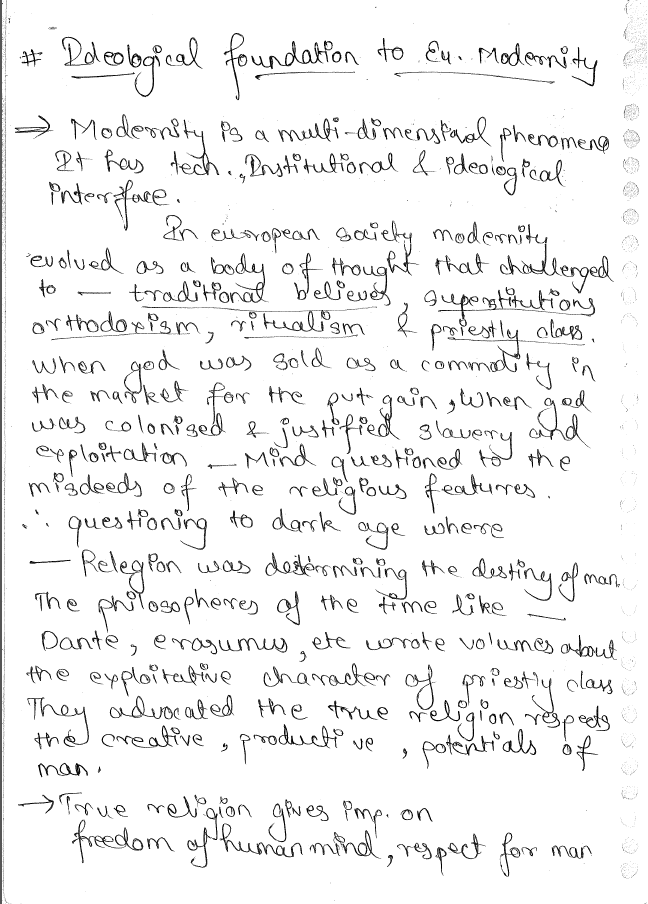 # Ideological foundation to Eu. Modernity
⇒ Modernity is a multi-dimensional phenomena
It has tech., Institutional & ideological
interface.
In european society modernity
evolved as a body of thought that challenged
to — traditional believes, superstitutions
orthodoxism, ritualism & priestly class.
When god was sold as a commodity in
the market for the pvt gain, When god
was colonised & justified slavery and
exploitation — Mind questioned to the
misdeeds of the religious features.
∴ questioning to dark age where
— Relegion was determining the destiny of man.
The philosopheres of the time like —
Dante, erasumus, etc wrote volumes about
the exploitative character of priestly class
They advocated the true religion respects
the creative, productive, potentials of
man.
→ True religion gives imp. on
freedom of human mind, respect for man